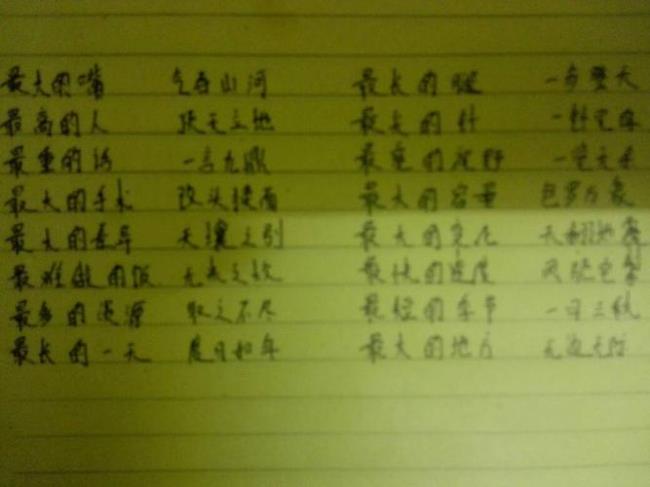 最大的嘴 气吞山河 最长的腿 一步登天
最高的人 顶天立地 最大的针 一针见血
最重的话 一言九鼎 最宽的视野 一览无余
最大的手术 改头换面 最大的容量 包罗万象
最大的差异 天壤之别 最大的变化 天翻地覆
最难做的饭 无米之炊 最快的速度 风驰电掣
最多的资源 取之不尽 最短的季节 一日三秋
最长的一天 度日如年 最大的地方 无边无际